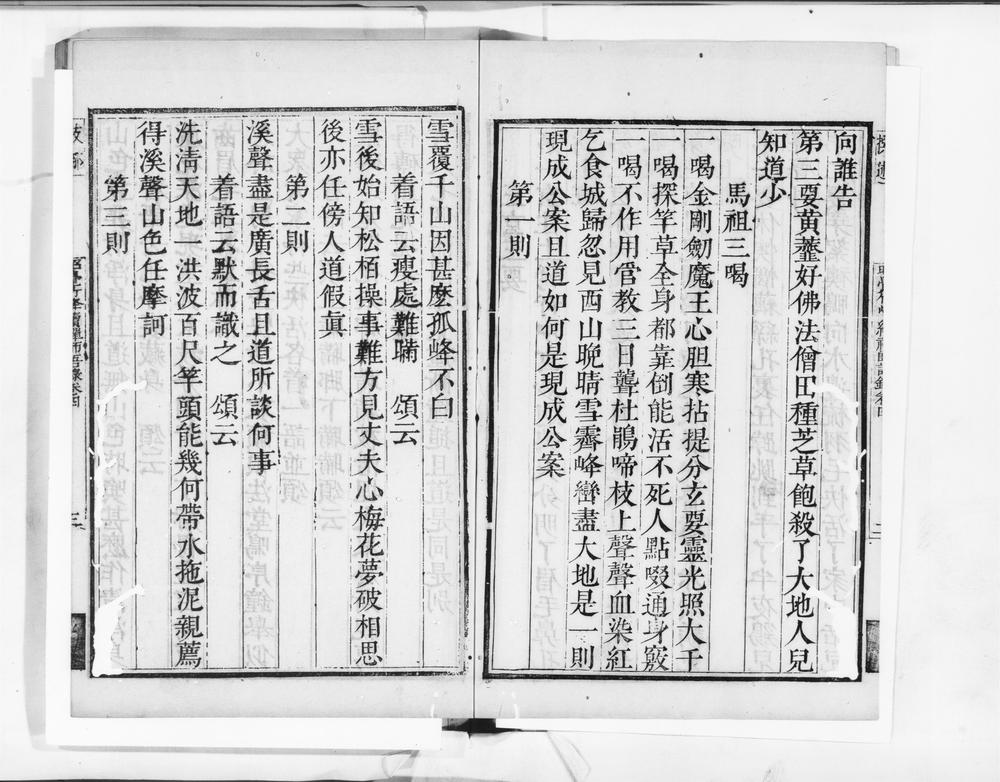 向誰告
第三要黃虀好佛法僧田種芝草飽殺了大地人兒
知道少
馬祖三喝
一喝金剛劒魔王心胆寒拈提分玄要靈光照大千
一喝探竿草全身都靠倒能活不死人點啜通身竅
一喝不作用管教三日聾杜鵑啼枝上聲聲血染紅
乞食城歸忽見西山晚晴雪霽峰巒盡大地是一則
現成公案且道如何是現成公案
第一則
雪覆千山因甚麼孤峰不白
着語云瘦處難瞞　頌云
雪後始知松栢操事難方見丈夫心梅花夢破相思
後亦任傍人道假眞
第二則
溪聲盡是廣長舌且道所談何事
着語云默而識之　頌云
洗淸天地一洪波百尺竿頭能幾何帶水拖泥親薦
得溪聲山色任摩訶
第三則